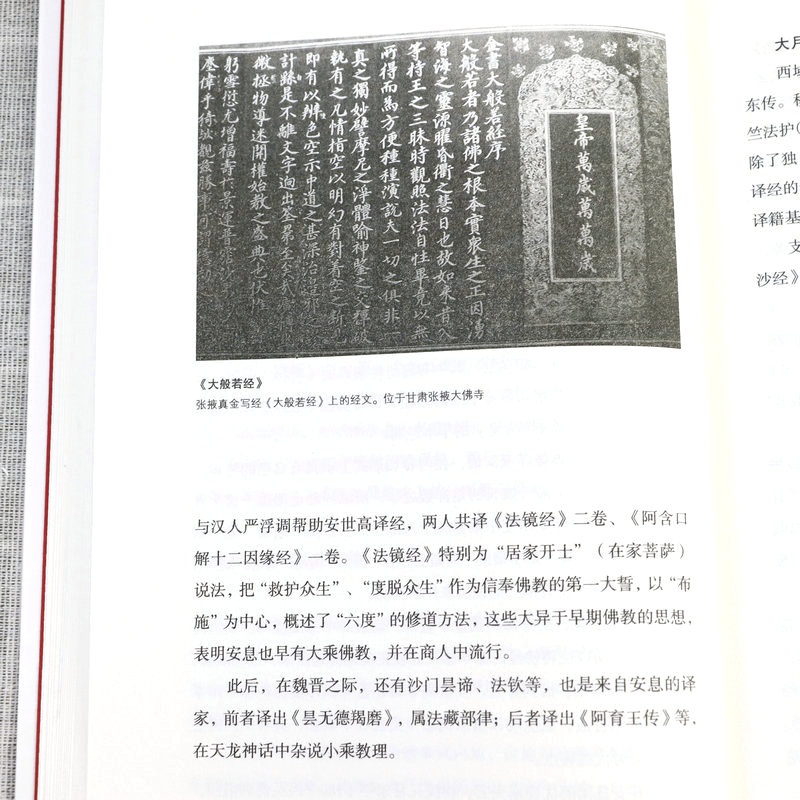 皇帝萬歲萬萬歲
金書大般若經序
大般若者乃諸佛之根本實眾生之正因湧
智海之靈源曜昏衢之慧日也故如來昔入
等持王之三昧時觀照法法自性畢竟以無
所得而為方便種種演說夫一切之俱非一
真之獨妙譬摩尼之淨體喻神
執有之凡情指空以明幻有對著空之
即有以辨色空示中道之甚深
計絲是不離文字迥出
微拯物導迷開權始教之盛典
增福壽於
《大般若经》
张掖真金写经《大般若经》上的经文。位于甘肃张掖大佛寺
与汉人严浮调帮助安世高译经，两人共译《法镜经》二卷、《阿含口
解十二因缘经》一卷。《法镜经》特别为“居家开士”（在家菩萨）
说法，把“救护众生”、“度脱众生”作为信奉佛教的第一大誓，以“布
施”为中心，概述了“六度”的修道方法，这些大异于早期佛教的思想，
表明安息也早有大乘佛教，并在商人中流行。
此后，在魏晋之际，还有沙门昙谛、法钦等，也是来自安息的译
家，前者译出《昙无德羯磨》，属法藏部律；后者译出《阿育王传》等，
在天龙神话中杂说小乘教理。
大月
西域
东传。
竺法护（
除了独
译经的
译籍基
支
沙经》